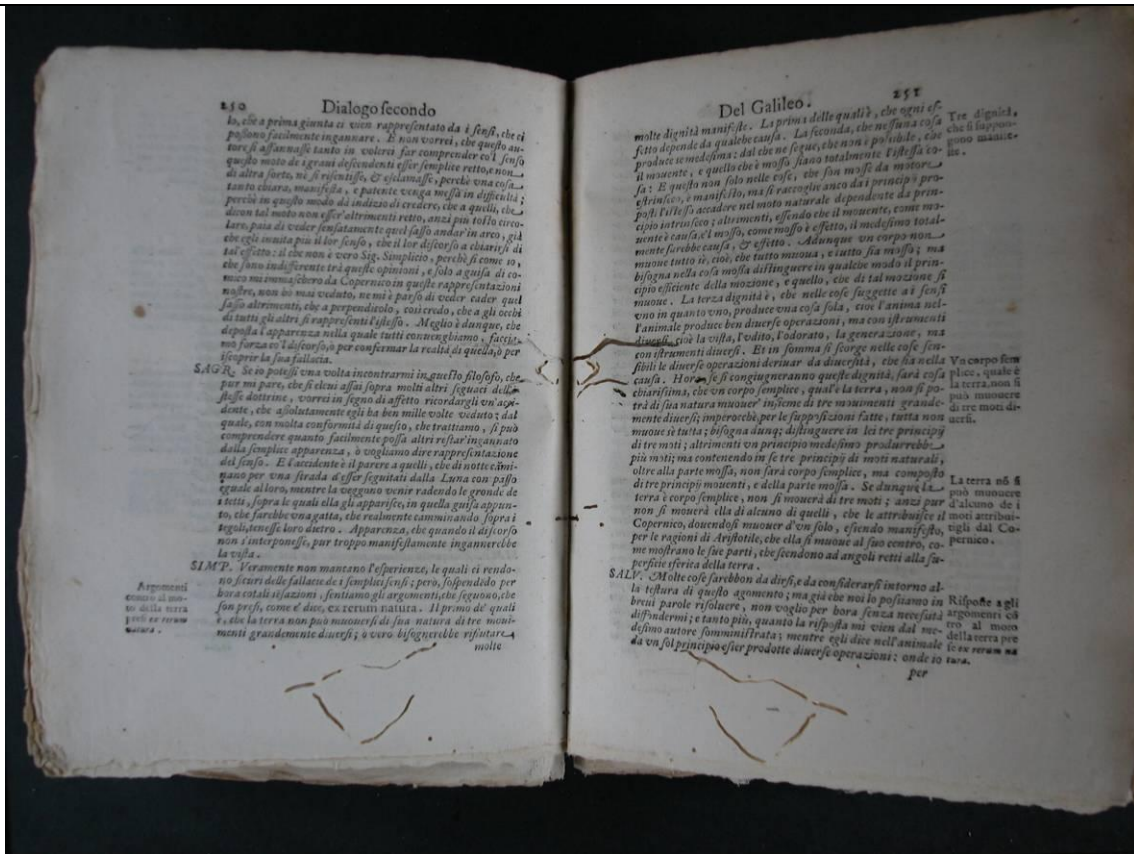 250
Dialogo secondo
lo, che a prima giunta ci vien rappresentato da i sensi, che ci
possono facilmente ingannare. E non vorrei, che questo au-
tore si affannasse tanto in volerci far comprender co'l senso
questo moto de i graui descendenti esser semplice retto, e non
di altra sorte, ne si risentisse, & esclamasse, perchè vna cosa
tanto chiara, manifesta, e patente venga messa in difficiltà;
perchè in questo modo dà indizio di credere, che a quelli, che
dicon tal moto non esser'altrimenti retto, anzi più tosto circo-
lare, paia di veder sensatamente quel sasso andar'in arco, già
che egli inuita più il lor senso, che il lor discorso a chiarirsi di
tal'effetto: il che non è vero Sig. Simplicio, perchè sì come io,
che sono indifferente trà queste opinioni, e solo a guisa di co-
mico mi immaschero da Copernico in queste rappresentazioni
nostre, non hò mai veduto, ne mi è parso di veder cader quel
sasso altrimenti, che a perpendicolo, così credo, che a gli occhi
di tutti gli altri si rappresenti l'istesso. Meglio è dunque, che
deposta l'apparenza nella quale tutti conuenghiamo, faccia-
mo forza co'l discorso, ò per confermar la realtà di quella, ò per
iscoprir la sua fallacia.
SAGR. Se io potessi vna volta incontrarmi in questo filosofo, che
pur mi pare, che si elcui assai sopra molti altri seguaci delle
stesse dottrine, vorrei in segno di affetto ricordargli vn'acci-
dente, che assolutamente egli ha ben mille volte veduto; dal
quale, con molta conformità di questo, che trattiamo, si può
comprendere quanto facilmente possa altri restar'ingannato
dalla semplice apparenza, ò vogliamo dire rappresentazione
del senso. E l'accidente è il parere a quelli, che di notte cami-
nano per vna strada d'esser seguitati dalla Luna con passo
eguale al loro, mentre la veggono venir radendo le gronde de
i tetti, sopra le quali ella gli apparisce, in quella guisa appun-
to, che farebbe vna gatta, che realmente camminando sopra i
tegoli, tenesse loro dietro. Apparenza, che quando il discorso
non s'interponesse, pur troppo manifestamente ingannerebbe
la vista.
SIMP. Veramente non mancano l'esperienze, le quali ci rendo-
no sicuri delle fallacie de i semplici sensi; però, sospendēdo per
hora cotali sensazioni, sentiamo gli argomenti, che seguono, che
son presi, come e' dice, ex rerum natura. Il primo de' quali
è, che la terra non può muouersi di sua natura di tre moui-
menti grandemente diuersi; ò vero bisognerebbe rifiutare
molte
Argomenti
contro al mo-
to della terra
presi ex rerum
natura.
Del Galileo.
251
molte dignità manifeste. La prima delle quali è, che ogni ef-
fetto depende da qualche causa. La seconda, che nessuna cosa
produce se medesima: dal che ne segue, che non è possibile, che
il mouente, e quello che è mosso siano totalmente l'istessa co-
sa: E questo non solo nelle cose, che son mosse da motore
estrinsico, è manifesto, ma si raccoglie anco da i principij pro-
posti l'istesso accadere nel moto naturale dependente da prin-
cipio intrinseco; altrimenti, essendo che il mouente, come mo-
uente è causa, e'l mosso, come mosso è effetto, il medesimo total-
mente sarebbe causa, & effetto. Adunque vn corpo non
muoue tutto sè, cioè, che tutto muoua, e tutto sia mosso; ma
bisogna nella cosa mossa distinguere in qualche modo il prin-
cipio efficiente della mozione, e quello, che di tal mozione si
muoue. La terza dignità è, che nelle cose suggette a i sensi
vno in quanto vno, produce vna cosa sola, cioè l'anima nel-
l'animale produce ben diuerse operazioni, ma con istrumenti
diuersi, cioè la vista, l'vdito, l'odorato, la generazione, ma
con istrumenti diuersi. Et in somma si scorge nelle cose sen-
sibili le diuerse operazioni deriuar da diuersità, che sia nella
causa. Hora se si congiugneranno queste dignità, sarà cosa
chiarissima, che vn corpo semplice, qual'è la terra, non si po-
trà di sua natura muouer' insieme di tre mouimenti grande-
mente diuersi; imperocchè per le supposizioni fatte, tutta non
muoue sè tutta; bisogna dunq; distinguere in lei tre principij
di tre moti; altrimenti vn principio medesimo produrrebbe
più moti; ma contenendo in se tre principij di moti naturali,
oltre alla parte mossa, non sarà corpo semplice, ma composto
di tre principij mouenti, e della parte mossa. Se dunque la
terra è corpo semplice, non si mouerà di tre moti; anzi pur
non si mouerà ella di alcuno di quelli, che le attribuisce il
Copernico, douendosi muouer d'vn solo, essendo manifesto,
per le ragioni di Aristotile, che ella si muoue al suo centro, co-
me mostrano le sue parti, che scendono ad angoli retti alla su-
perficie sferica della terra.
SALV. Molte cose sarebbon da dirsi, e da considerarsi intorno al-
la testura di questo agomento; ma già che noi lo possiamo in
breui parole risoluere, non voglio per hora senza necessità
diffondermi; e tanto più, quanto la risposta mi vien dal me-
desimo autore somministrata; mentre egli dice nell'animale
da vn sol principio esser prodotte diuerse operazioni: onde io
per
Tre dignità,
che si suppon-
gono manife-
ste.
Vn corpo sem
plice, quale è
la terra, non si
può muouere
di tre moti di-
uersi.
La terra nō si
può muouere
d'alcuno de i
moti attribui-
tigli dal Co-
pernico.
Risposte a gli
argomenti cō
tro al moto
della terra pre
se ex rerum na
tura.